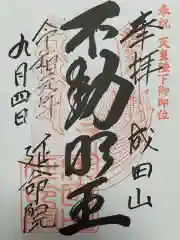 奉祝 天皇陛下御即位
奉拝 成田山
不動明王
令和元年
九月四日
延命院